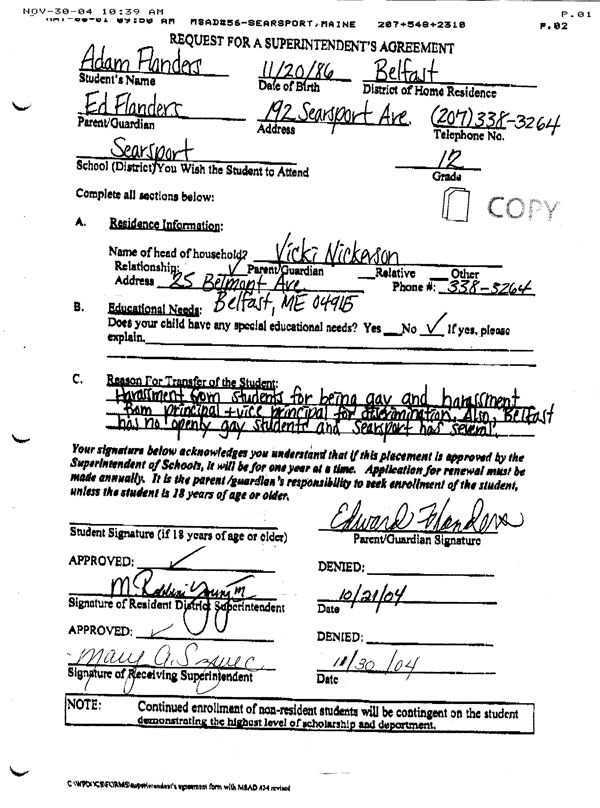 NOV-30-04 10:39 AM P.01
09:50 AM MSAD#56-SEARSPORT,MAINE 207+548+2310 P.02
REQUEST FOR A SUPERINTENDENT'S AGREEMENT
Adam Flanders 11/20/86 Belfast
Student's Name Date of Birth District of Home Residence
Ed Flanders 192 Searsport Ave. (207)338-3264
Parent/Guardian Address Telephone No.
Searsport 12
School (District) You Wish the Student to Attend Grade
Complete all sections below:
COPY
A. Residence Information:
Name of head of household? Vicki Nickerson
Relationship: ✓ Parent/Guardian Relative Other
Address 25 Belmont Ave. Phone #: 338-3264
Belfast, ME 04915
B. Educational Needs:
Does your child have any special educational needs? Yes No ✓ If yes, please
explain.
C. Reason For Transfer of the Student:
Harassment from students for being gay and harassment
from principal + vice principal for discrimination. Also, Belfast
has no openly gay students and Searsport has several.
Your signature below acknowledges you understand that if this placement is approved by the
Superintendent of Schools, it will be for one year at a time. Application for renewal must be
made annually. It is the parent/guardian's responsibility to seek enrollment of the student,
unless the student is 18 years of age or older.
Edward Flanders
Student Signature (if 18 years of age or older) Parent/Guardian Signature
APPROVED: ✓ DENIED:
M. Young 10/21/04
Signature of Resident District Superintendent Date
APPROVED: ✓ DENIED:
Mary A. Szwec /30/04
Signature of Receiving Superintendent Date
NOTE: Continued enrollment of non-resident students will be contingent on the student
demonstrating the highest level of scholarship and department.
superintendent's agreement form with MSAD #34 revised